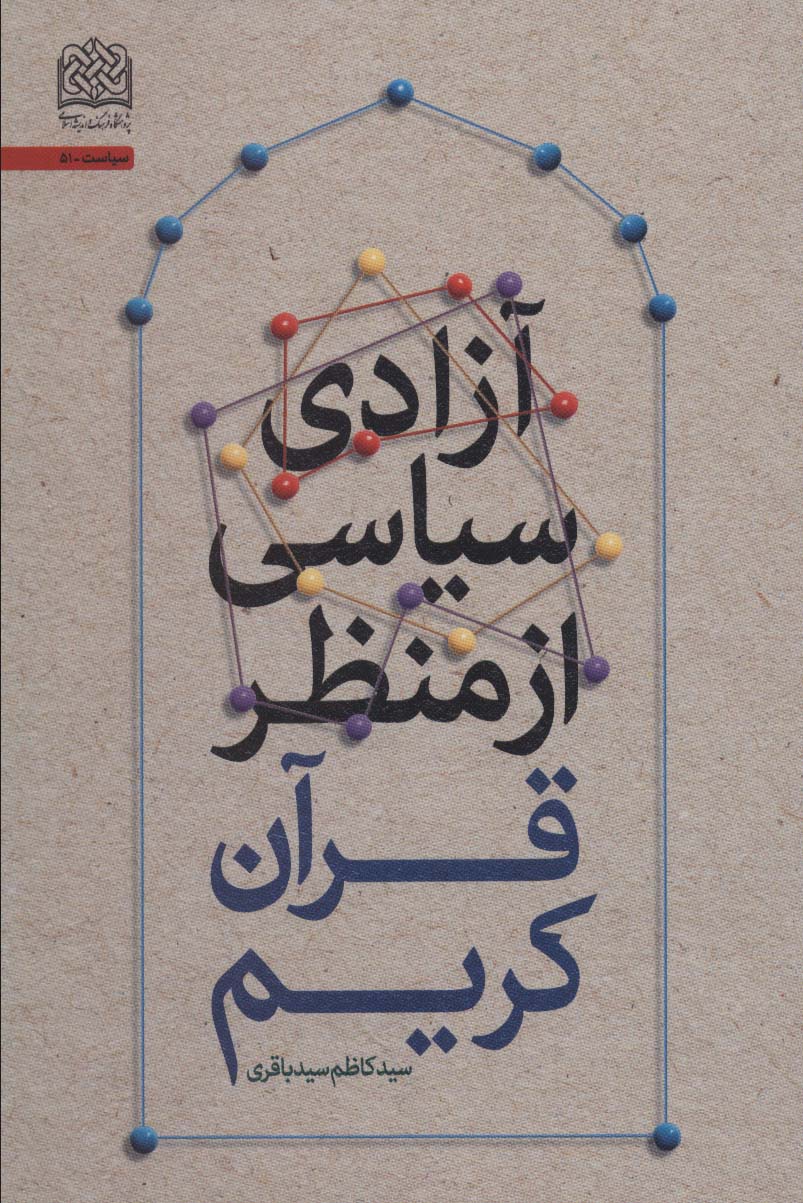 پژوهشگاه فرهنگ و اندیشه اسلامی
سیاست - ۵۱
آزادی
سیاسی
از منظر
قرآن
کریم
سید کاظم سیدباقری